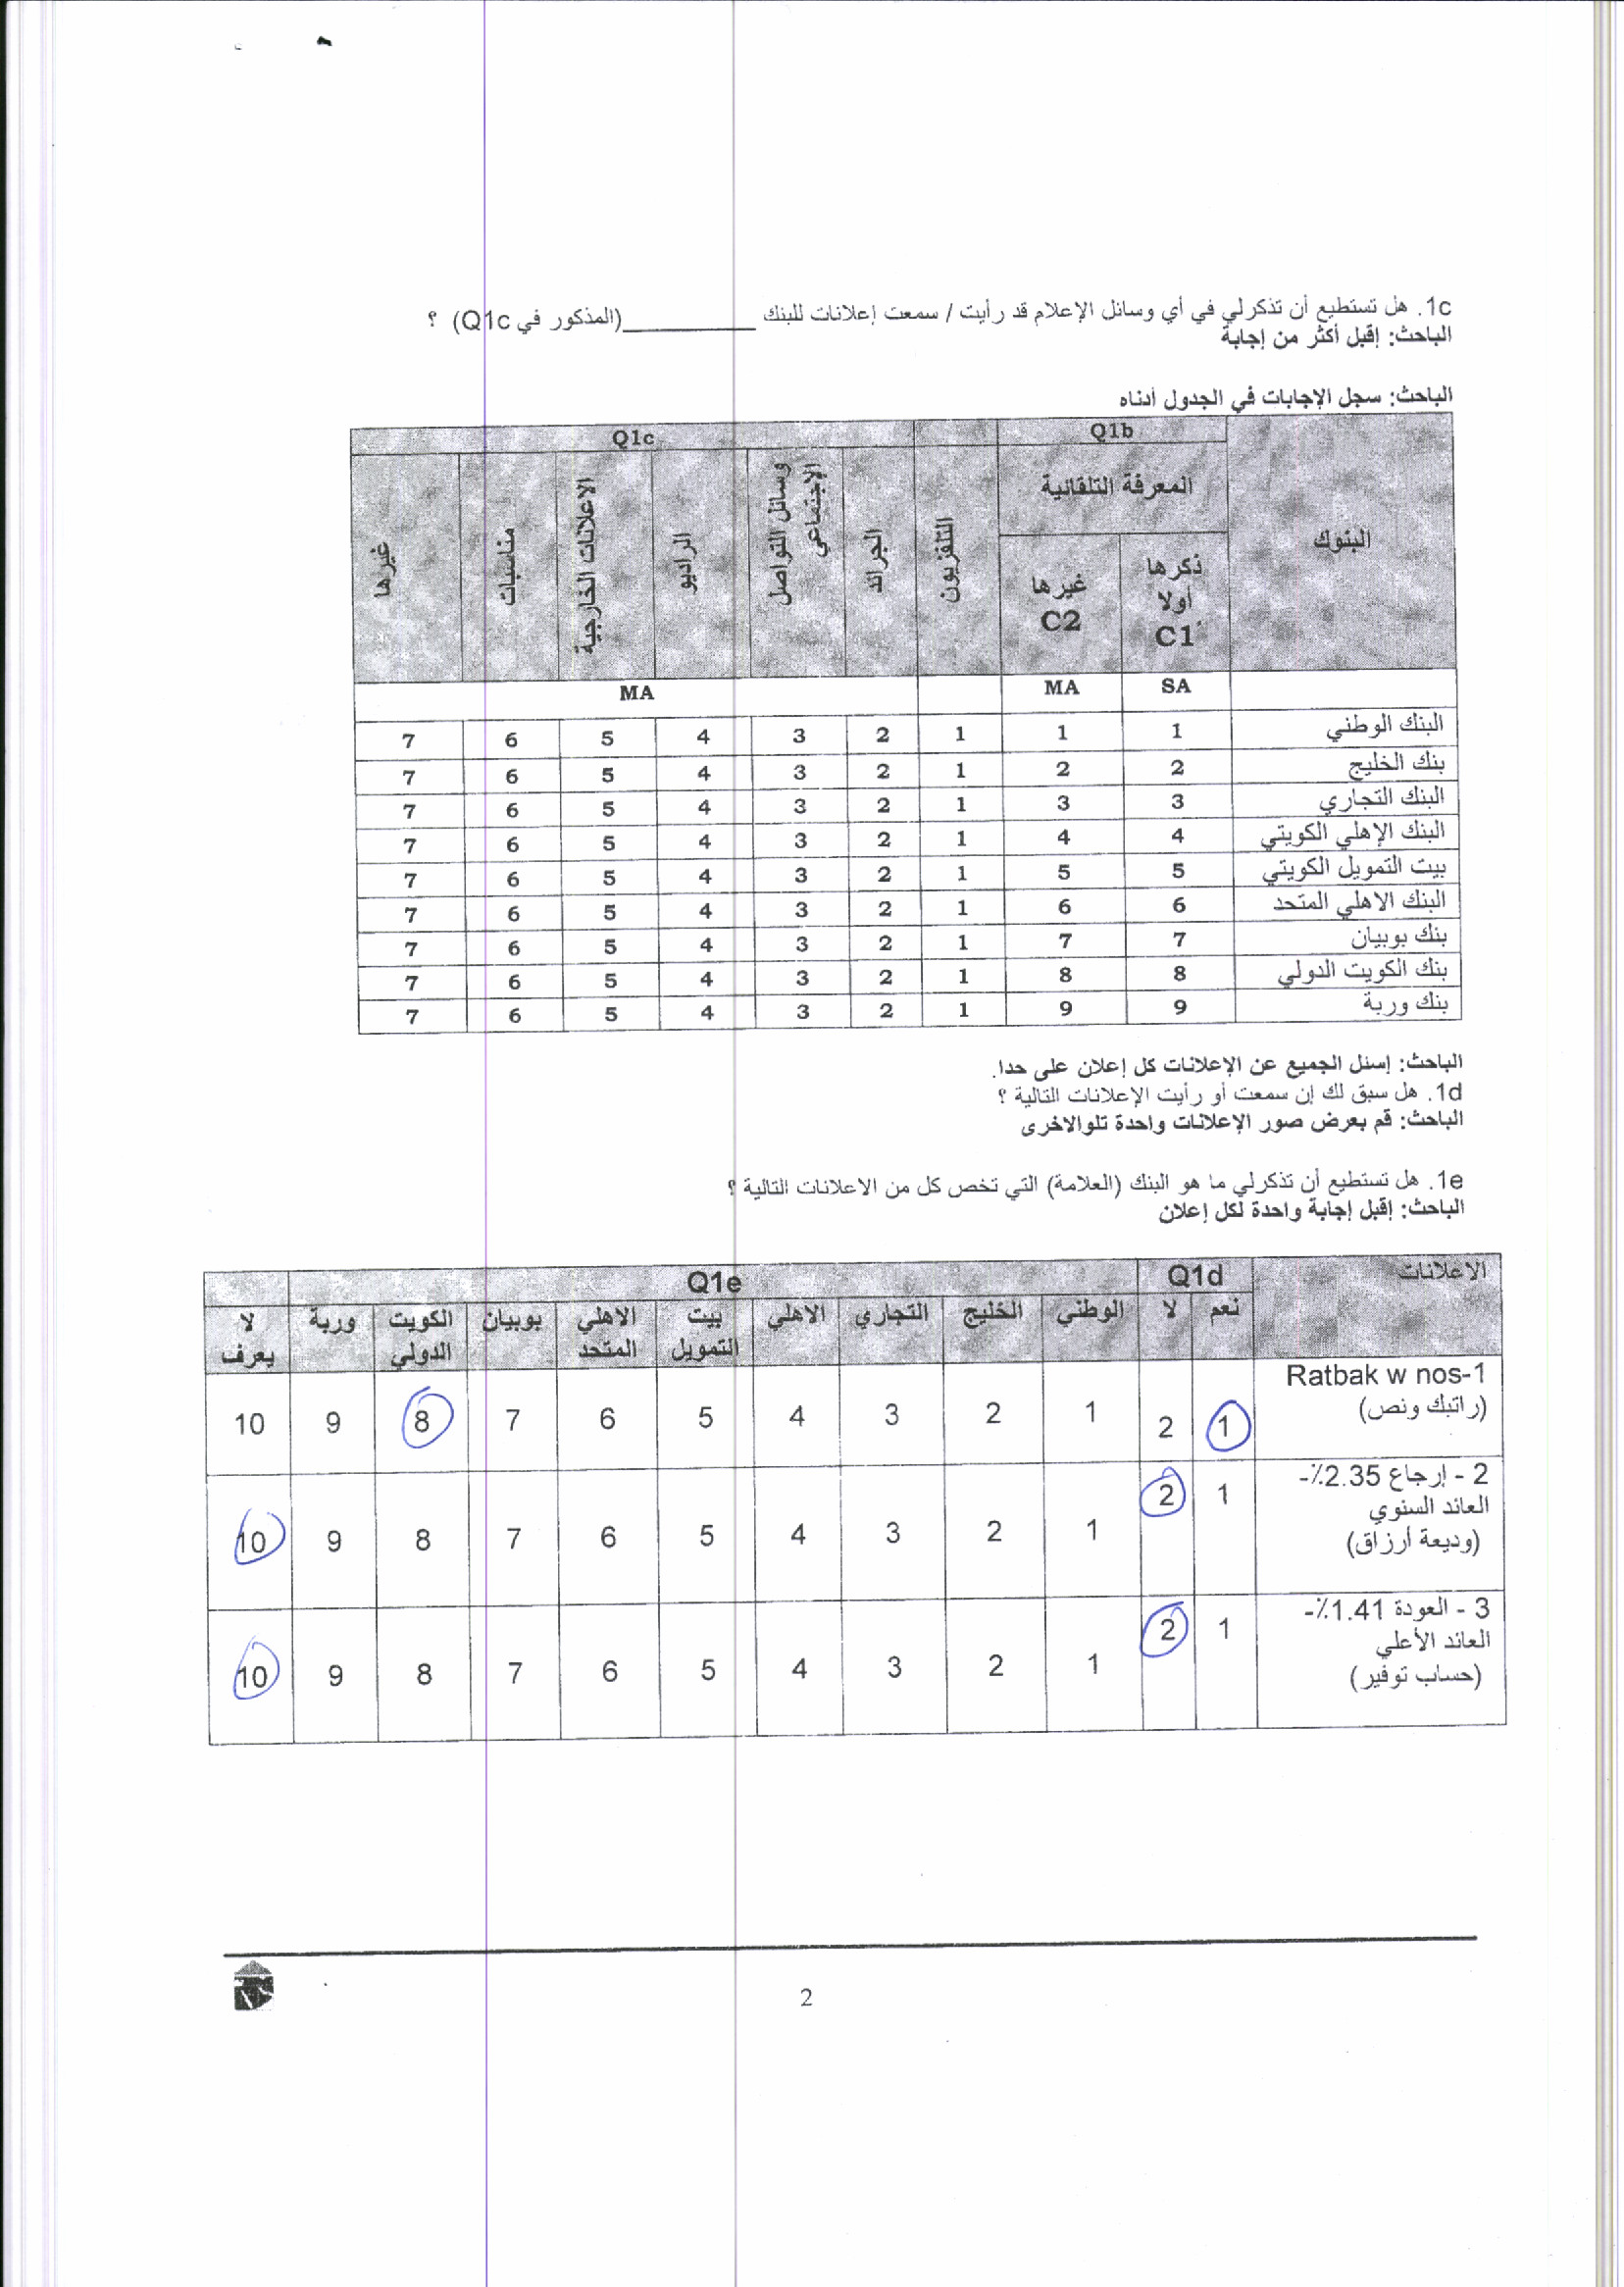 1c. هل تستطيع أن تذكرلي في أي وسائل الإعلام قد رأيت / سمعت إعلانات للبنك __________(المذكور في Q1c) ؟
الباحث: إقبل أكثر من إجابة
الباحث: سجل الإجابات في الجدول أدناه
البنوك Q1b Q1c
المعرفة التلقائية
ذكرها أولا C1 غيرها C2 التلفزيون الجرائد وسائل التواصل الإجتماعي الراديو الاعلانات الخارجية مناسبات غيرها
SA MA MA
البنك الوطني 1 1 1 2 3 4 5 6 7
بنك الخليج 2 2 1 2 3 4 5 6 7
البنك التجاري 3 3 1 2 3 4 5 6 7
البنك الإهلي الكويتي 4 4 1 2 3 4 5 6 7
بيت التمويل الكويتي 5 5 1 2 3 4 5 6 7
البنك الاهلي المتحد 6 6 1 2 3 4 5 6 7
بنك بوبيان 7 7 1 2 3 4 5 6 7
بنك الكويت الدولي 8 8 1 2 3 4 5 6 7
بنك وربة 9 9 1 2 3 4 5 6 7
الباحث: إسئل الجميع عن الإعلانات كل إعلان على حدا.
1d. هل سبق لك إن سمعت أو رأيت الإعلانات التالية ؟
الباحث: قم بعرض صور الإعلانات واحدة تلوالاخرى
1e. هل تستطيع أن تذكرلي ما هو البنك (العلامة) التي تخص كل من الاعلانات التالية ؟
الباحث: إقبل إجابة واحدة لكل إعلان
الاعلانات Q1d Q1e
نعم لا الوطني الخليج التجاري الاهلي بيت التمويل الاهلي المتحد بوبيان الكويت الدولي وربة لا يعرف
Ratbak w nos-1
(راتبك ونص) 1 2 1 2 3 4 5 6 7 8 9 10
2 - إرجاع 2.35٪-
العائد السنوي
(وديعة أرزاق) 1 2 1 2 3 4 5 6 7 8 9 10
3 - العودة 1.41٪-
العائد الأعلي
(حساب توفير) 1 2 1 2 3 4 5 6 7 8 9 10
2